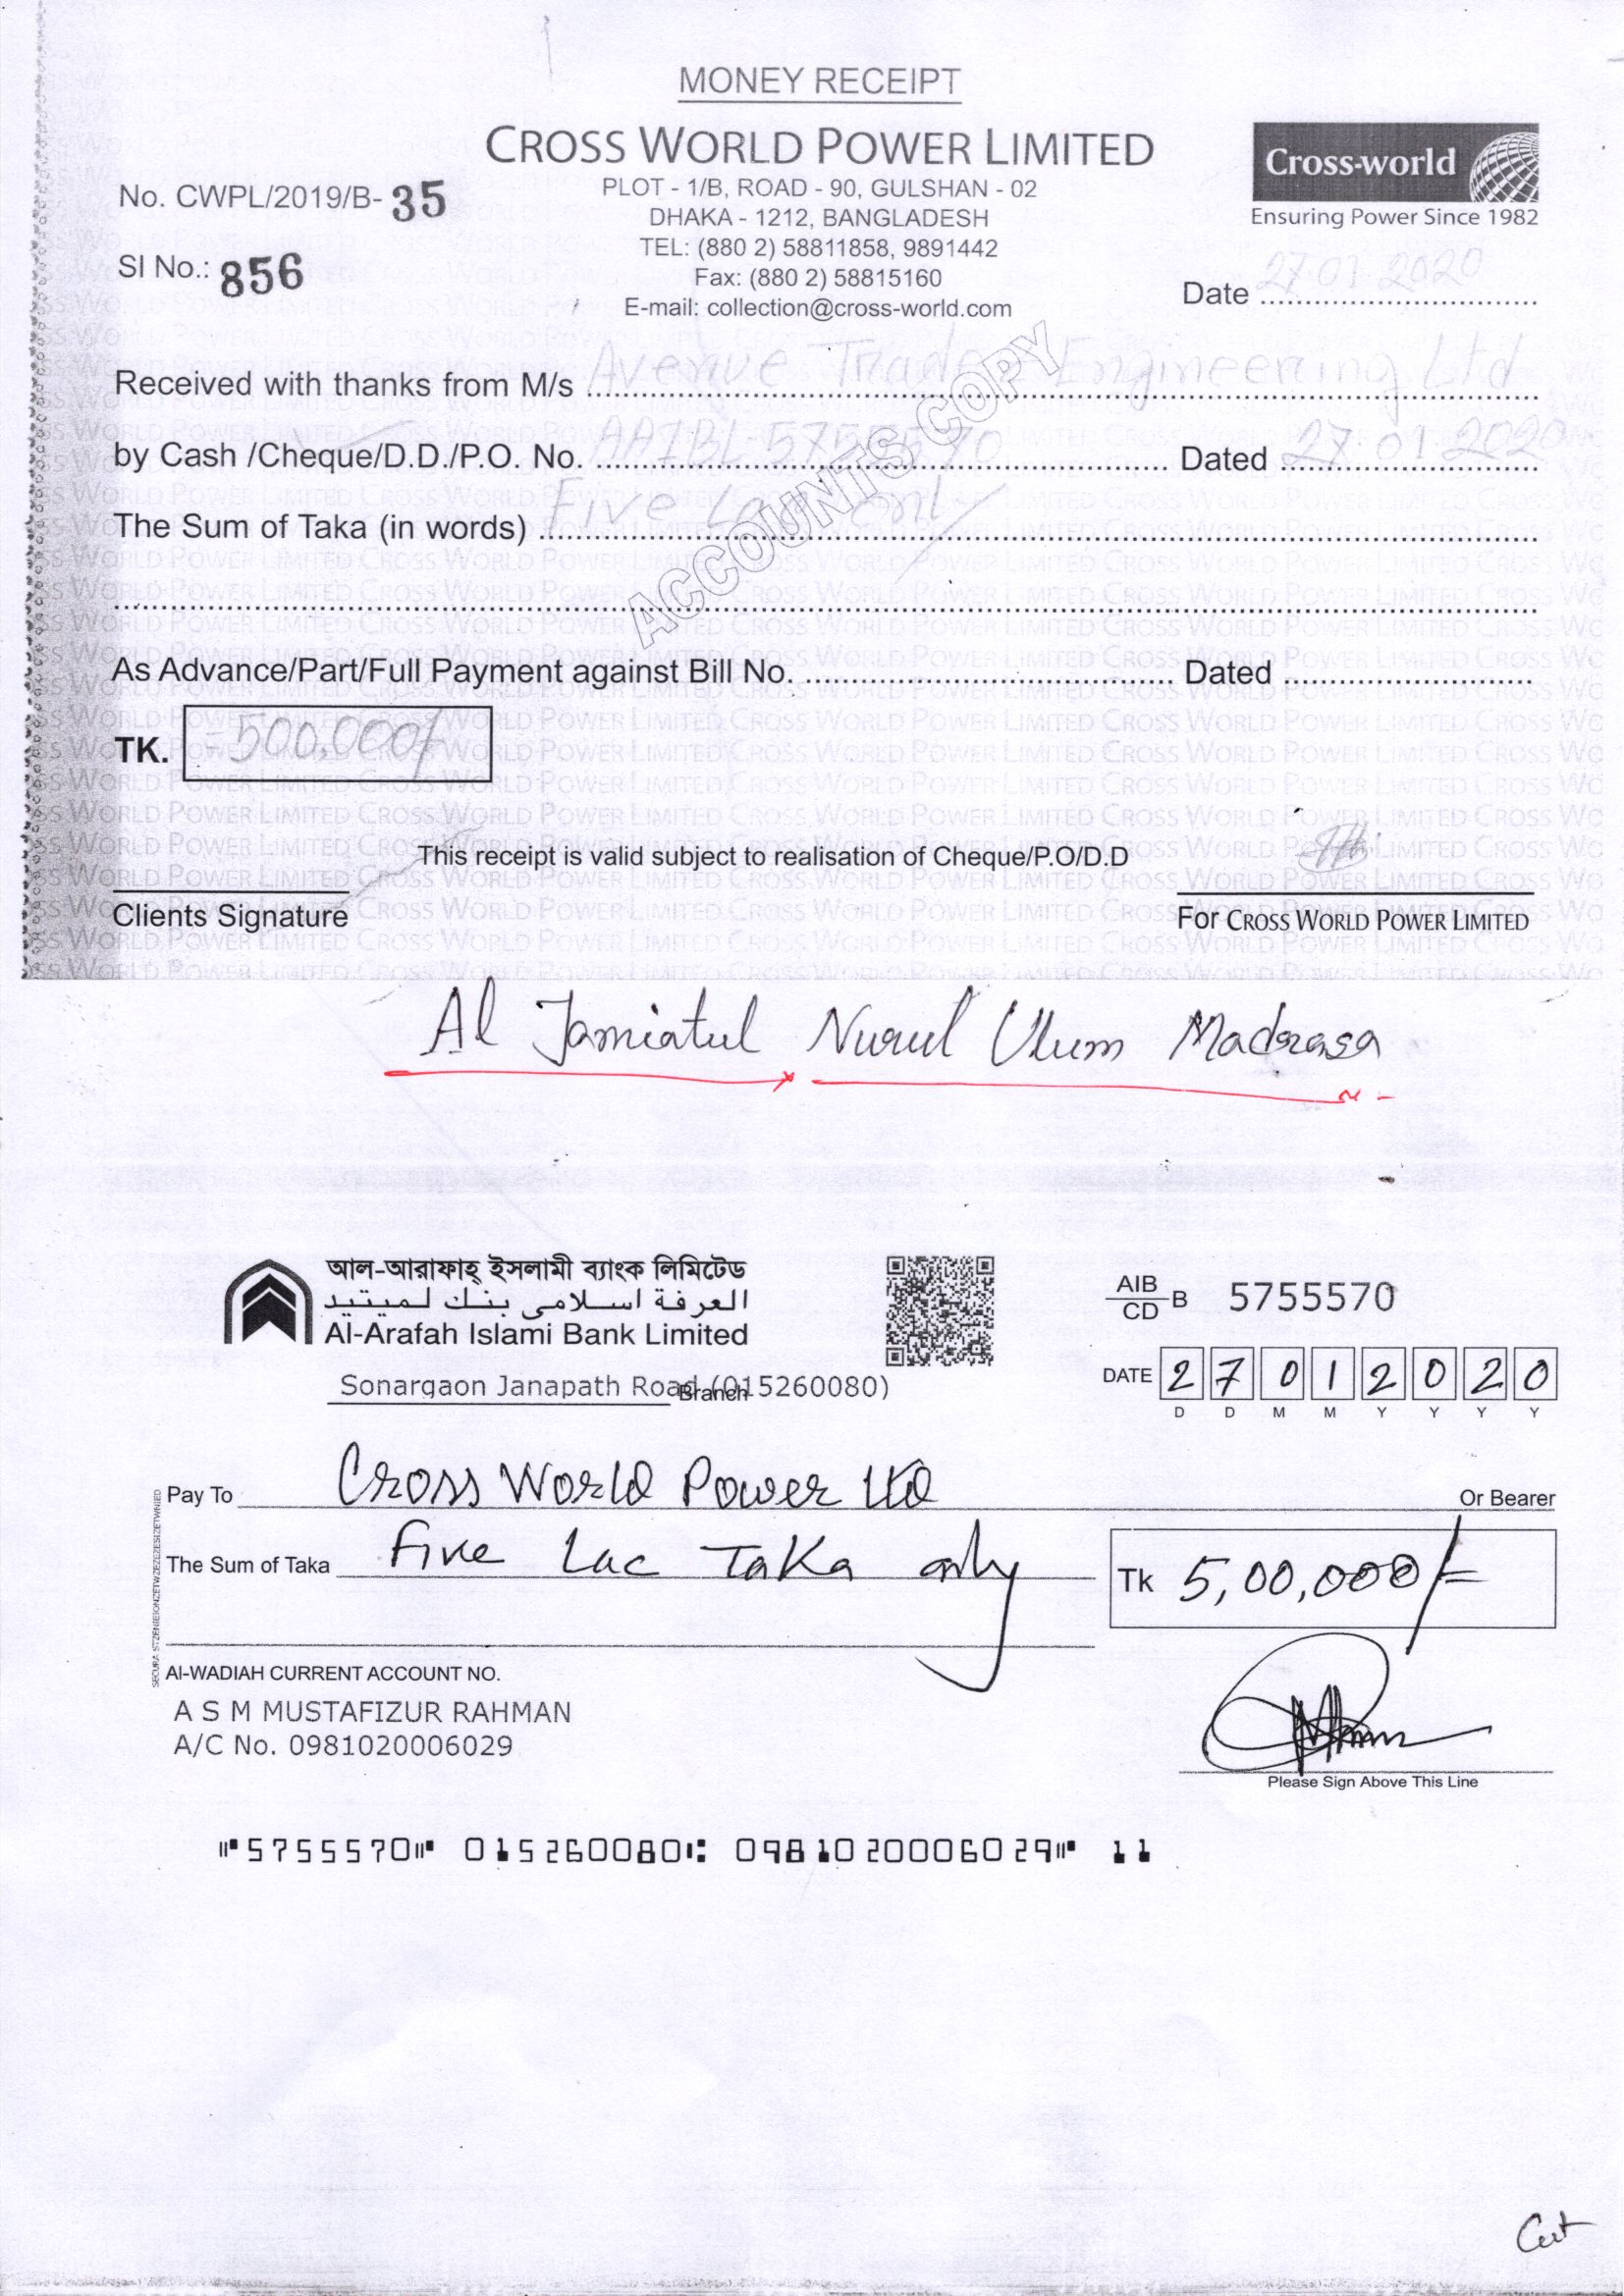 MONEY RECEIPT
CROSS WORLD POWER LIMITED
PLOT - 1/B, ROAD - 90, GULSHAN - 02
DHAKA - 1212, BANGLADESH
TEL: (880 2) 58811858, 9891442
Fax: (880 2) 58815160
E-mail: collection@cross-world.com
Cross-world
Ensuring Power Since 1982
No. CWPL/2019/B- 35
SI No.: 856
Date 27 01 2020
Received with thanks from M/s Avenue Trade Engineering Ltd
by Cash /Cheque/D.D./P.O. No. AAIBL 5755570 Dated 27 01 2020
The Sum of Taka (in words) Five Lac only
ACCOUNTS COPY
As Advance/Part/Full Payment against Bill No. Dated
TK. =500,000/
This receipt is valid subject to realisation of Cheque/P.O/D.D
Clients Signature
For CROSS WORLD POWER LIMITED
Al Jamiatul Nurul Ulum Madrasa
আল-আরাফাহ্ ইসলামী ব্যাংক লিমিটেড
العرفة اسلامى بنك لميتيد
Al-Arafah Islami Bank Limited
Sonargaon Janapath Road (015260080)
Branch
AIB
CD B 5755570
DATE 2 7 0 1 2 0 2 0
D D M M Y Y Y Y
Pay To Cross World Power Ltd Or Bearer
The Sum of Taka Five Lac Taka only
Tk 5,00,000/=
Al-WADIAH CURRENT ACCOUNT NO.
A S M MUSTAFIZUR RAHMAN
A/C No. 0981020006029
Please Sign Above This Line
⑈5755570⑈ 015260080⑆ 0981020006029⑈ 11